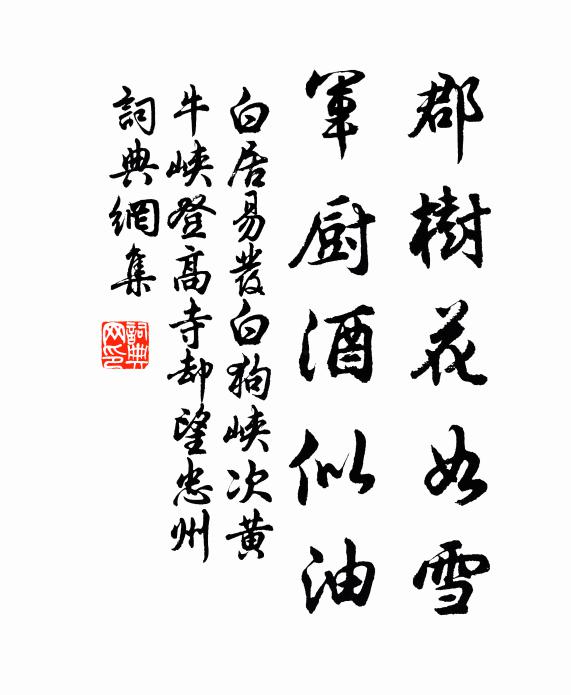 郡樹花如雪
軍厨酒似油
白居易發白狗峽次黃
牛峽登高寺却望忠州
詞典網集
詞典网印